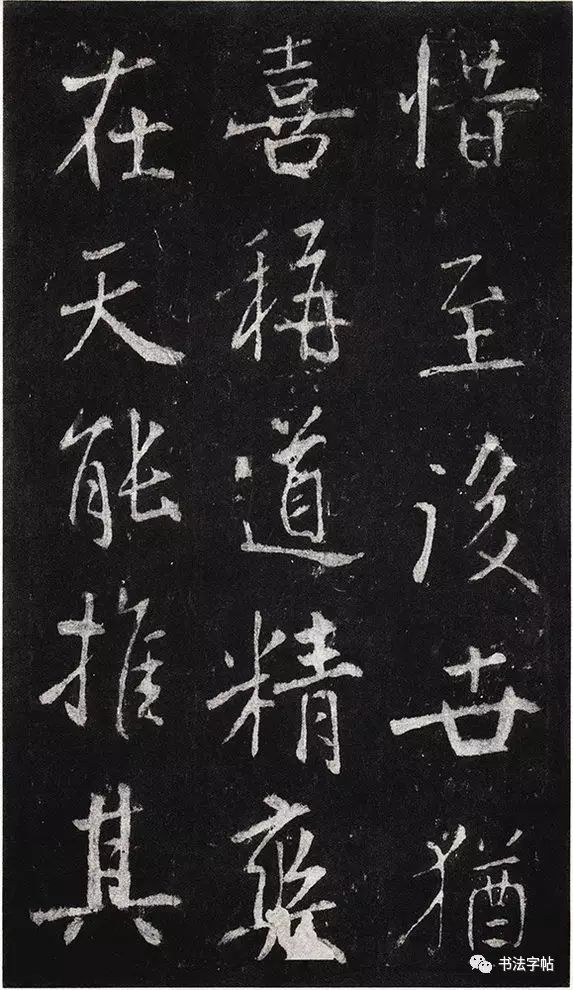 惜至後世猶
喜稱道精
在天能推其
书法字帖